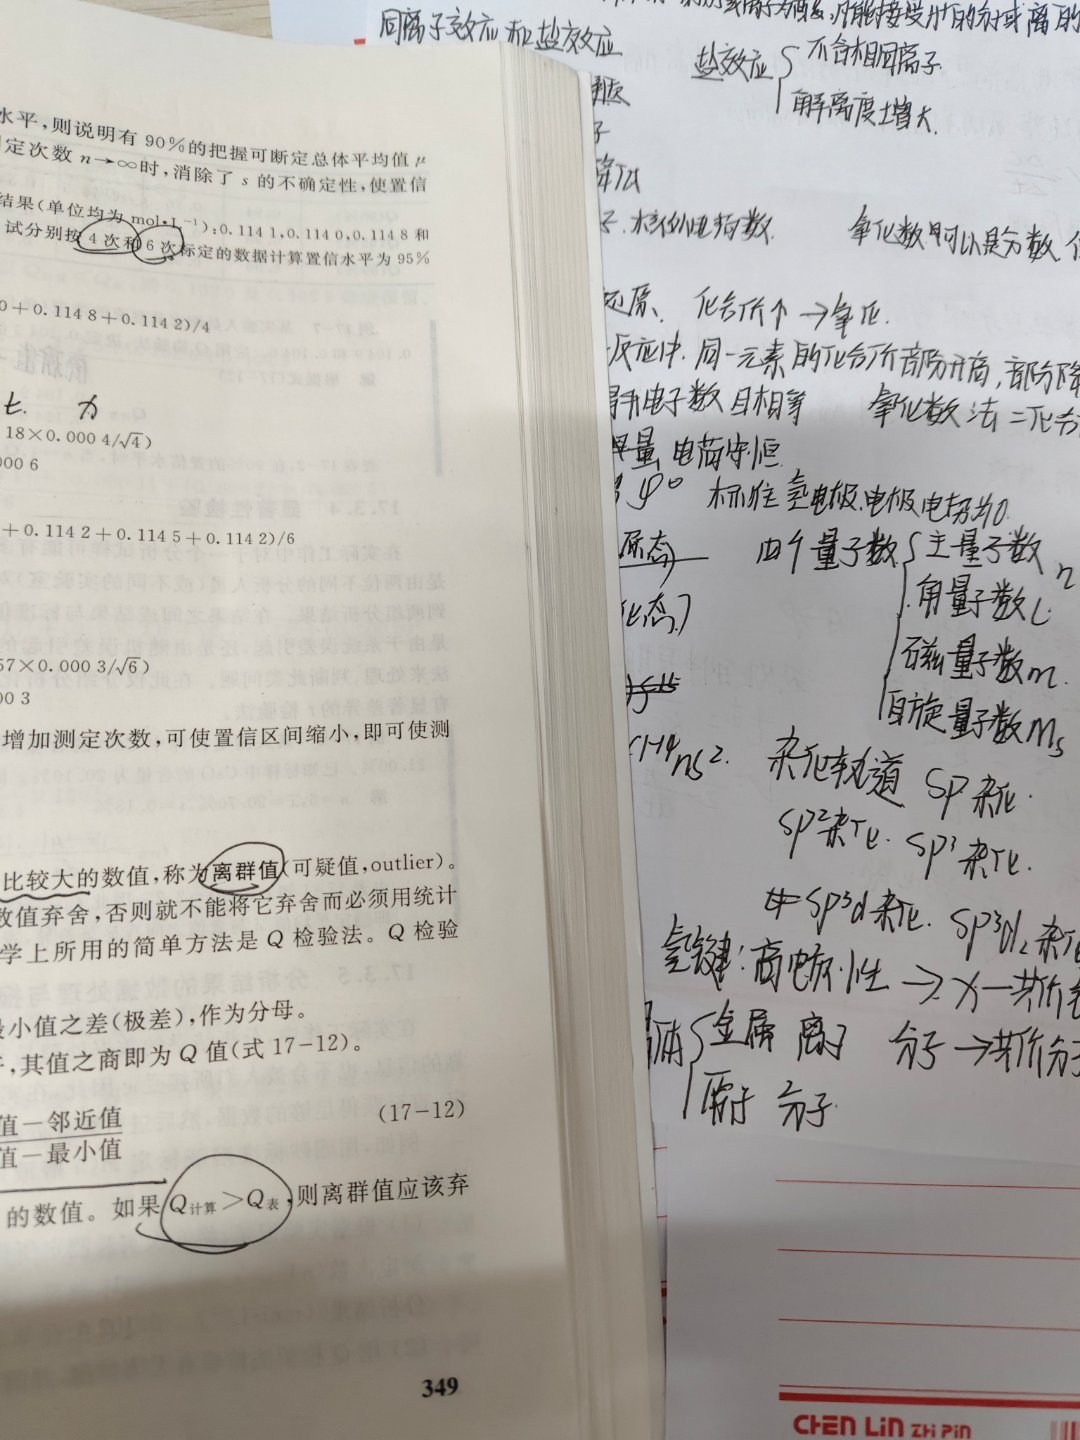 水平,则说明有90%的把握可断定总体平均值μ
定次数n→∞时,消除了s的不确定性,使置信
结果(单位均为mol·L⁻¹):0.114 1,0.114 0,0.114 8和
试分别按4次和6次标定的数据计算置信水平为95%
0+0.114 8+0.114 2)/4
18×0.000 4/√4)
000 6
+0.114 2+0.114 5+0.114 2)/6
57×0.000 3/√6)
00 3
增加测定次数,可使置信区间缩小,即可使测
比较大的数值,称为离群值(可疑值,outlier)。
数值弃舍,否则就不能将它弃舍而必须用统计
学上所用的简单方法是Q检验法。Q检验
最小值之差(极差),作为分母。
,其值之商即为Q值(式17-12)。
值-邻近值
值-最小值
(17-12)
的数值。如果Q计算>Q表,则离群值应该弃
349
同离子效应和盐效应
盐效应
不含相同离子
解离度增大.
氧化数可以是分数
化合价↑→氧化.
反应中.同一元素的化合价部分升高,部分降
电子数目相等
氧化数法
电荷守恒
φ° 标准氢电极.电极电势为0.
原态)
四个量子数
主量子数n
角量子数l
磁量子数m.
自旋量子数ms
化态)
ns². 杂化轨道 sp杂化.
sp²杂化. sp³杂化.
sp³d杂化. sp³d₂杂化
氢键:高电负性→X—共价
金属 离子 分子→共价分子
原子 分子.
CHEN LIN ZHI PIN